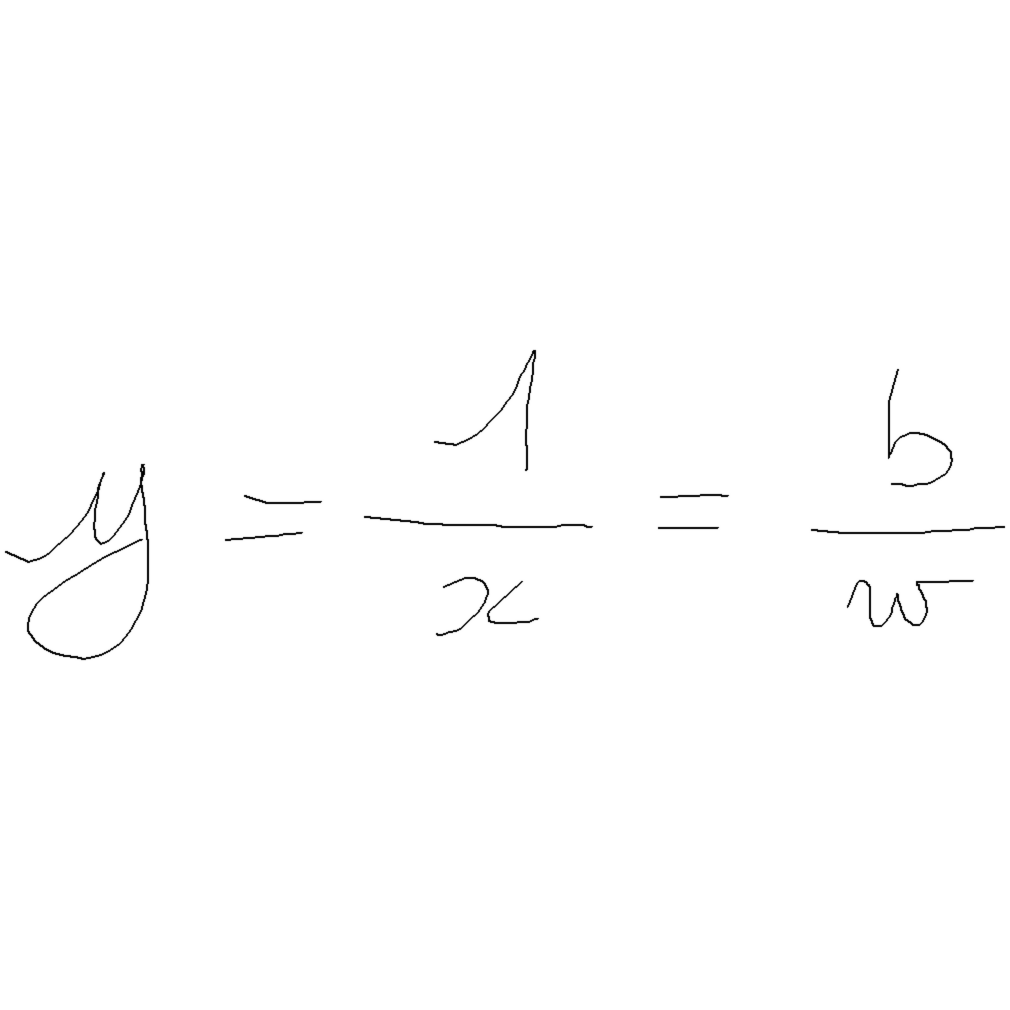 y = 1/x = b/w